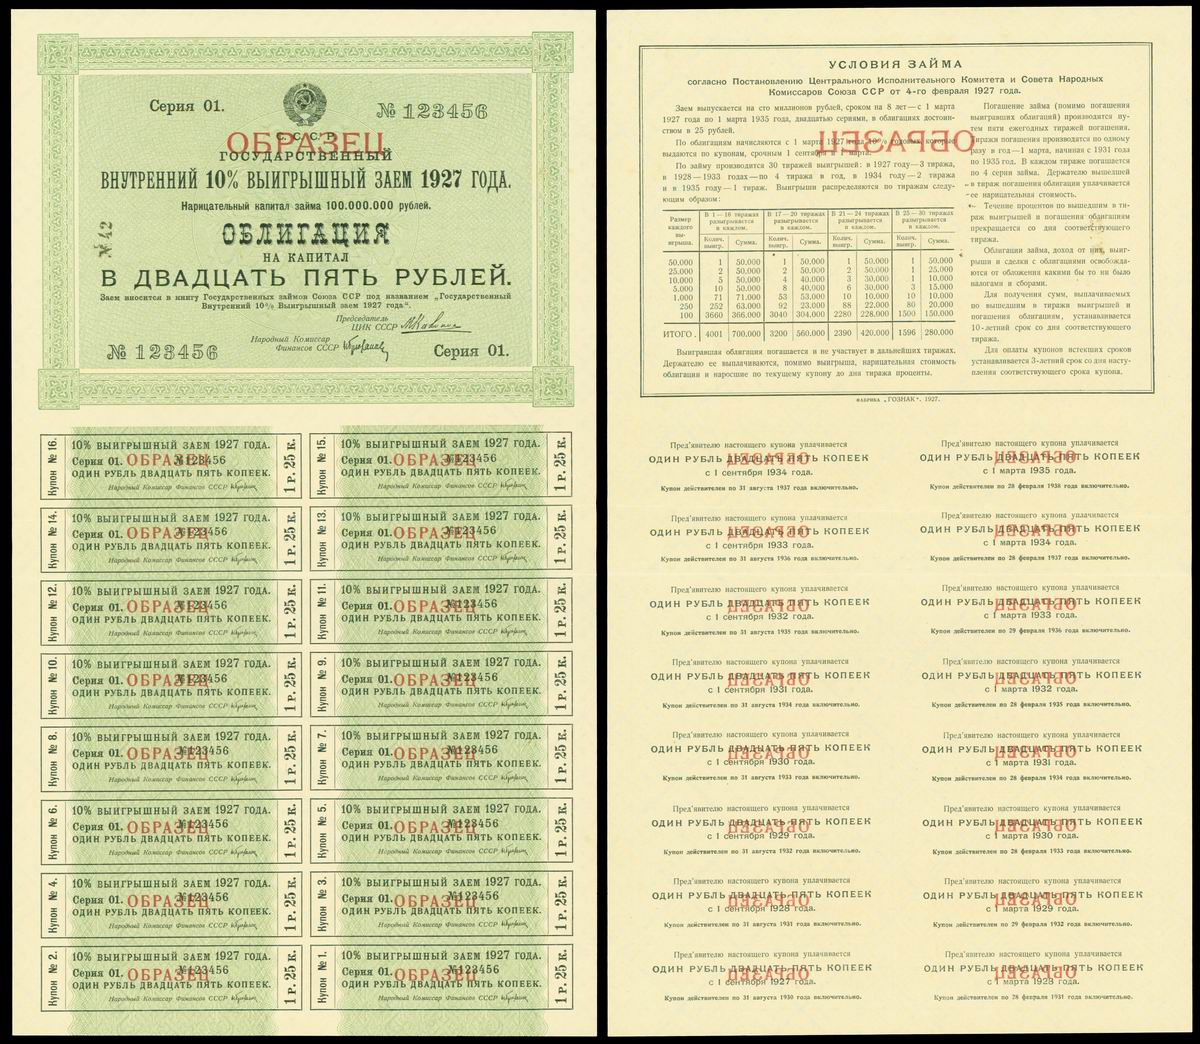 Серия 01.
№ 123456
С. С. С. Р.
ОБРАЗЕЦ
ГОСУДАРСТВЕННЫЙ
ВНУТРЕННИЙ 10% ВЫИГРЫШНЫЙ ЗАЕМ 1927 ГОДА.
Нарицательный капитал займа 100.000.000 рублей.
№ 42
ОБЛИГАЦИЯ
НА КАПИТАЛ
В ДВАДЦАТЬ ПЯТЬ РУБЛЕЙ.
Заем вносится в книгу Государственных займов Союза ССР под названием „Государственный
Внутренний 10% Выигрышный заем 1927 года“.
Председатель
ЦИК СССР
Народный Комиссар
Финансов СССР
№ 123456
Серия 01.
Купон № 16.
10% ВЫИГРЫШНЫЙ ЗАЕМ 1927 ГОДА.
Серия 01. ОБРАЗЕЦ №123456
ОДИН РУБЛЬ ДВАДЦАТЬ ПЯТЬ КОПЕЕК.
Народный Комиссар Финансов СССР
1 Р. 25 К.
Купон № 15.
10% ВЫИГРЫШНЫЙ ЗАЕМ 1927 ГОДА.
Серия 01. ОБРАЗЕЦ №123456
ОДИН РУБЛЬ ДВАДЦАТЬ ПЯТЬ КОПЕЕК.
Народный Комиссар Финансов СССР
1 Р. 25 К.
Купон № 14.
10% ВЫИГРЫШНЫЙ ЗАЕМ 1927 ГОДА.
Серия 01. ОБРАЗЕЦ №123456
ОДИН РУБЛЬ ДВАДЦАТЬ ПЯТЬ КОПЕЕК.
Народный Комиссар Финансов СССР
1 Р. 25 К.
Купон № 13.
10% ВЫИГРЫШНЫЙ ЗАЕМ 1927 ГОДА.
Серия 01. ОБРАЗЕЦ №123456
ОДИН РУБЛЬ ДВАДЦАТЬ ПЯТЬ КОПЕЕК.
Народный Комиссар Финансов СССР
1 Р. 25 К.
Купон № 12.
10% ВЫИГРЫШНЫЙ ЗАЕМ 1927 ГОДА.
Серия 01. ОБРАЗЕЦ №123456
ОДИН РУБЛЬ ДВАДЦАТЬ ПЯТЬ КОПЕЕК.
Народный Комиссар Финансов СССР
1 Р. 25 К.
Купон № 11.
10% ВЫИГРЫШНЫЙ ЗАЕМ 1927 ГОДА.
Серия 01. ОБРАЗЕЦ №123456
ОДИН РУБЛЬ ДВАДЦАТЬ ПЯТЬ КОПЕЕК.
Народный Комиссар Финансов СССР
1 Р. 25 К.
Купон № 10.
10% ВЫИГРЫШНЫЙ ЗАЕМ 1927 ГОДА.
Серия 01. ОБРАЗЕЦ №123456
ОДИН РУБЛЬ ДВАДЦАТЬ ПЯТЬ КОПЕЕК.
Народный Комиссар Финансов СССР
1 Р. 25 К.
Купон № 9.
10% ВЫИГРЫШНЫЙ ЗАЕМ 1927 ГОДА.
Серия 01. ОБРАЗЕЦ №123456
ОДИН РУБЛЬ ДВАДЦАТЬ ПЯТЬ КОПЕЕК.
Народный Комиссар Финансов СССР
1 Р. 25 К.
Купон № 8.
10% ВЫИГРЫШНЫЙ ЗАЕМ 1927 ГОДА.
Серия 01. ОБРАЗЕЦ №123456
ОДИН РУБЛЬ ДВАДЦАТЬ ПЯТЬ КОПЕЕК.
Народный Комиссар Финансов СССР
1 Р. 25 К.
Купон № 7.
10% ВЫИГРЫШНЫЙ ЗАЕМ 1927 ГОДА.
Серия 01. ОБРАЗЕЦ №123456
ОДИН РУБЛЬ ДВАДЦАТЬ ПЯТЬ КОПЕЕК.
Народный Комиссар Финансов СССР
1 Р. 25 К.
Купон № 6.
10% ВЫИГРЫШНЫЙ ЗАЕМ 1927 ГОДА.
Серия 01. ОБРАЗЕЦ №123456
ОДИН РУБЛЬ ДВАДЦАТЬ ПЯТЬ КОПЕЕК.
Народный Комиссар Финансов СССР
1 Р. 25 К.
Купон № 5.
10% ВЫИГРЫШНЫЙ ЗАЕМ 1927 ГОДА.
Серия 01. ОБРАЗЕЦ №123456
ОДИН РУБЛЬ ДВАДЦАТЬ ПЯТЬ КОПЕЕК.
Народный Комиссар Финансов СССР
1 Р. 25 К.
Купон № 4.
10% ВЫИГРЫШНЫЙ ЗАЕМ 1927 ГОДА.
Серия 01. ОБРАЗЕЦ №123456
ОДИН РУБЛЬ ДВАДЦАТЬ ПЯТЬ КОПЕЕК.
Народный Комиссар Финансов СССР
1 Р. 25 К.
Купон № 3.
10% ВЫИГРЫШНЫЙ ЗАЕМ 1927 ГОДА.
Серия 01. ОБРАЗЕЦ №123456
ОДИН РУБЛЬ ДВАДЦАТЬ ПЯТЬ КОПЕЕК.
Народный Комиссар Финансов СССР
1 Р. 25 К.
Купон № 2.
10% ВЫИГРЫШНЫЙ ЗАЕМ 1927 ГОДА.
Серия 01. ОБРАЗЕЦ №123456
ОДИН РУБЛЬ ДВАДЦАТЬ ПЯТЬ КОПЕЕК.
Народный Комиссар Финансов СССР
1 Р. 25 К.
Купон № 1.
10% ВЫИГРЫШНЫЙ ЗАЕМ 1927 ГОДА.
Серия 01. ОБРАЗЕЦ №123456
ОДИН РУБЛЬ ДВАДЦАТЬ ПЯТЬ КОПЕЕК.
Народный Комиссар Финансов СССР
1 Р. 25 К.
УСЛОВИЯ ЗАЙМА
согласно Постановлению Центрального Исполнительного Комитета и Совета Народных
Комиссаров Союза ССР от 4-го февраля 1927 года.
Заем выпускается на сто миллионов рублей, сроком на 8 лет—с 1 марта
1927 года по 1 марта 1935 года, двадцатью сериями, в облигациях достоин-
ством в 25 рублей.
ОБРАЗЕЦ
По облигациям начисляются с 1 марта 1927 года 10% годовых, которые
выдаются по купонам, срочным 1 сентября и 1 марта.
По займу производится 30 тиражей выигрышей: в 1927 году—3 тиража,
в 1928—1933 годах—по 4 тиража в год, в 1934 году—2 тиража
и в 1935 году—1 тираж. Выигрыши распределяются по тиражам следу-
ющим образом:
Размер каждого выигрыша. В 1—16 тиражах разыгрывается в каждом. В 17—20 тиражах разыгрывается в каждом. В 21—24 тиражах разыгрывается в каждом. В 25—30 тиражах разыгрывается в каждом.
Колич. выигр. Сумма. Колич. выигр. Сумма. Колич. выигр. Сумма. Колич. выигр. Сумма.
50.000 1 50.000 1 50.000 1 50.000 1 50.000
25.000 2 50.000 2 50.000 2 50.000 1 25.000
10.000 5 50.000 4 40.000 3 30.000 1 10.000
5.000 10 50.000 8 40.000 6 30.000 3 15.000
1.000 71 71.000 53 53.000 10 10.000 10 10.000
250 252 63.000 92 23.000 88 22.000 80 20.000
100 3660 366.000 3040 304.000 2280 228.000 1500 150.000
ИТОГО . 4001 700.000 3200 560.000 2390 420.000 1596 280.000
Выигравшая облигация погашается и не участвует в дальнейших тиражах.
Держателю ее выплачиваются, помимо выигрыша, нарицательная стоимость
облигации и наросшие по текущему купону до дня тиража проценты.
Погашение займа (помимо погашения
выигравших облигаций) производится пу-
тем пяти ежегодных тиражей погашения.
Тиражи погашения производятся по одному
разу в год—1 марта, начиная с 1931 года
по 1935 год. В каждом тираже погашается
по 4 серии займа. Держателю вышедшей
в тираж погашения облигации уплачивается
ее нарицательная стоимость.
Течение процентов по вышедшим в ти-
раж выигрышей и погашения облигациям
прекращается со дня соответствующего
тиража.
Облигации займа, доход от них, выиг-
рыши и сделки с облигациями освобожда-
ются от обложения какими бы то ни было
налогами и сборами.
Для получения сумм, выплачиваемых
по вышедшим в тиражи выигрышей и
погашения облигациям, устанавливается
10-летний срок со дня соответствующего
тиража.
Для оплаты купонов истекших сроков
устанавливается 3-летний срок со дня насту-
пления соответствующего срока купона.
ФАБРИКА „ГОЗНАК“. 1927.
Пред'явителю настоящего купона уплачивается
ОДИН РУБЛЬ ДВАДЦАТЬ ПЯТЬ КОПЕЕК
ОБРАЗЕЦ
с 1 сентября 1934 года.
Купон действителен по 31 августа 1937 года включительно.
Пред'явителю настоящего купона уплачивается
ОДИН РУБЛЬ ДВАДЦАТЬ ПЯТЬ КОПЕЕК
ОБРАЗЕЦ
с 1 марта 1935 года.
Купон действителен по 28 февраля 1938 года включительно.
Пред'явителю настоящего купона уплачивается
ОДИН РУБЛЬ ДВАДЦАТЬ ПЯТЬ КОПЕЕК
ОБРАЗЕЦ
с 1 сентября 1933 года.
Купон действителен по 31 августа 1936 года включительно.
Пред'явителю настоящего купона уплачивается
ОДИН РУБЛЬ ДВАДЦАТЬ ПЯТЬ КОПЕЕК
ОБРАЗЕЦ
с 1 марта 1934 года.
Купон действителен по 28 февраля 1937 года включительно.
Пред'явителю настоящего купона уплачивается
ОДИН РУБЛЬ ДВАДЦАТЬ ПЯТЬ КОПЕЕК
ОБРАЗЕЦ
с 1 сентября 1932 года.
Купон действителен по 31 августа 1935 года включительно.
Пред'явителю настоящего купона уплачивается
ОДИН РУБЛЬ ДВАДЦАТЬ ПЯТЬ КОПЕЕК
ОБРАЗЕЦ
с 1 марта 1933 года.
Купон действителен по 29 февраля 1936 года включительно.
Пред'явителю настоящего купона уплачивается
ОДИН РУБЛЬ ДВАДЦАТЬ ПЯТЬ КОПЕЕК
ОБРАЗЕЦ
с 1 сентября 1931 года.
Купон действителен по 31 августа 1934 года включительно.
Пред'явителю настоящего купона уплачивается
ОДИН РУБЛЬ ДВАДЦАТЬ ПЯТЬ КОПЕЕК
ОБРАЗЕЦ
с 1 марта 1932 года.
Купон действителен по 28 февраля 1935 года включительно.
Пред'явителю настоящего купона уплачивается
ОДИН РУБЛЬ ДВАДЦАТЬ ПЯТЬ КОПЕЕК
ОБРАЗЕЦ
с 1 сентября 1930 года.
Купон действителен по 31 августа 1933 года включительно.
Пред'явителю настоящего купона уплачивается
ОДИН РУБЛЬ ДВАДЦАТЬ ПЯТЬ КОПЕЕК
ОБРАЗЕЦ
с 1 марта 1931 года.
Купон действителен по 28 февраля 1934 года включительно.
Пред'явителю настоящего купона уплачивается
ОДИН РУБЛЬ ДВАДЦАТЬ ПЯТЬ КОПЕЕК
ОБРАЗЕЦ
с 1 сентября 1929 года.
Купон действителен по 31 августа 1932 года включительно.
Пред'явителю настоящего купона уплачивается
ОДИН РУБЛЬ ДВАДЦАТЬ ПЯТЬ КОПЕЕК
ОБРАЗЕЦ
с 1 марта 1930 года.
Купон действителен по 28 февраля 1933 года включительно.
Пред'явителю настоящего купона уплачивается
ОДИН РУБЛЬ ДВАДЦАТЬ ПЯТЬ КОПЕЕК
ОБРАЗЕЦ
с 1 сентября 1928 года.
Купон действителен по 31 августа 1931 года включительно.
Пред'явителю настоящего купона уплачивается
ОДИН РУБЛЬ ДВАДЦАТЬ ПЯТЬ КОПЕЕК
ОБРАЗЕЦ
с 1 марта 1929 года.
Купон действителен по 29 февраля 1932 года включительно.
Пред'явителю настоящего купона уплачивается
ОДИН РУБЛЬ ДВАДЦАТЬ ПЯТЬ КОПЕЕК
ОБРАЗЕЦ
с 1 сентября 1927 года.
Купон действителен по 31 августа 1930 года включительно.
Пред'явителю настоящего купона уплачивается
ОДИН РУБЛЬ ДВАДЦАТЬ ПЯТЬ КОПЕЕК
ОБРАЗЕЦ
с 1 марта 1928 года.
Купон действителен по 28 февраля 1931 года включительно.